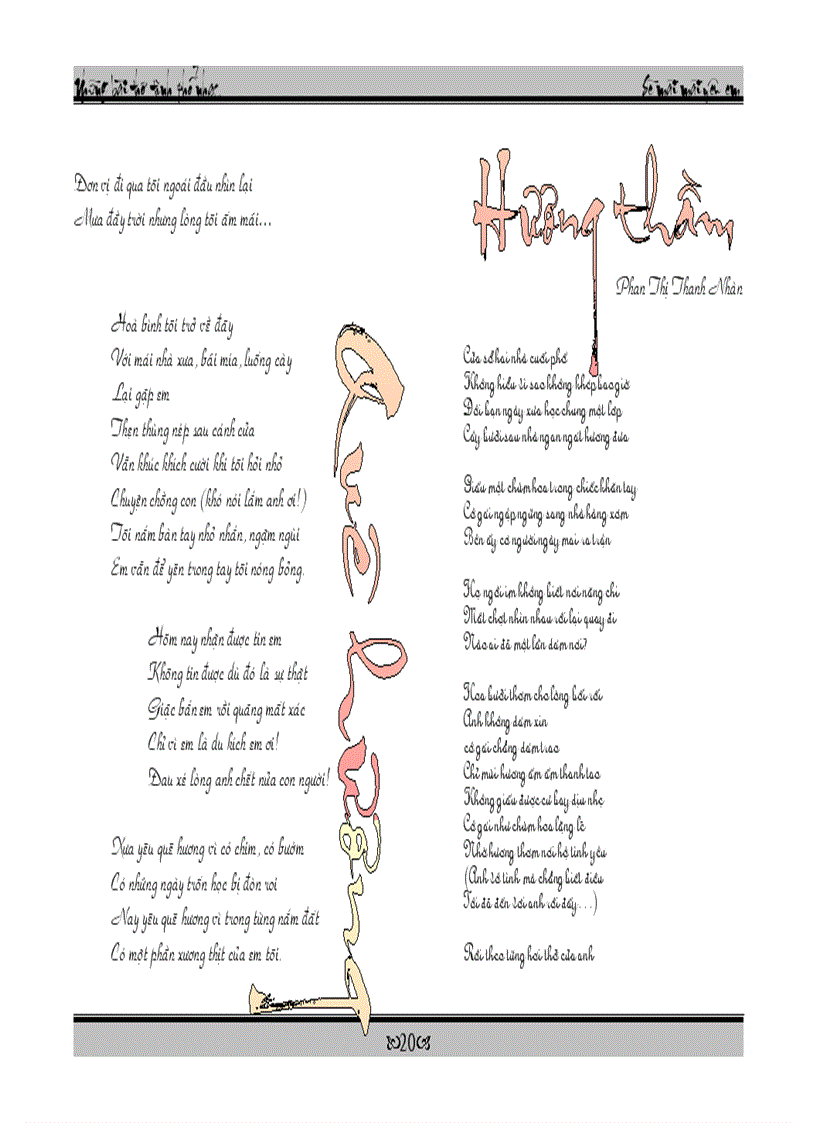 Những bài thơ tình phổ nhạc
Sẽ mãi mãi yêu em
Đơn vị đi qua tôi ngoái đầu nhìn lại
Mưa đầy trời nhưng lòng tôi ấm mãi...
Hoà bình tôi trở về đây
Với mái nhà xưa, bãi mía, luống cày
Lại gặp em
Thẹn thùng nép sau cánh cửa
Vẫn khúc khích cười khi tôi hỏi nhỏ
Chuyện chồng con (khó nói lắm anh ơi!)
Tôi nắm bàn tay nhỏ nhắn, ngậm ngùi
Em vẫn để yên trong tay tôi nóng bỏng.
Hôm nay nhận được tin em
Không tin được dù đó là sự thật
Giặc bắn em rồi quăng mất xác
Chỉ vì em là du kích em ơi!
Đau xé lòng anh chết nửa con người!
Xưa yêu quê hương vì có chim, có bướm
Có những ngày trốn học bị đòn roi
Nay yêu quê hương vì trong từng nắm đất
Có một phần xương thịt của em tôi.
Quê hương
Hương thầm
Phan Thị Thanh Nhàn
Cửa sổ hai nhà cuối phố
Không hiểu vì sao không khép bao giờ
Đôi bạn ngày xưa học chung một lớp
Cây bưởi sau nhà ngan ngát hương đưa
Giấu một chùm hoa trong chiếc khăn tay
Cô gái ngập ngừng sang nhà hàng xóm
Bên ấy có người ngày mai ra trận
Họ ngồi im không biết nói năng chi
Mắt chợt nhìn nhau rồi lại quay đi
Nào ai đã một lần dám nói?
Hoa bưởi thơm cho lòng bối rối
Anh không dám xin
cô gái chẳng dám trao
Chỉ mùi hương ấm ấm thanh tao
Không giấu được cứ bay dịu nhẹ
Cô gái như chùm hoa lặng lẽ
Nhờ hương thơm nói hộ tình yêu
(Anh vô tình mà chẳng biết điều
Tôi đã đến với anh rồi đấy...)
Rồi theo từng hơi thở của anh
20